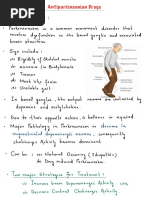 Antiparkinsonian Drugs
Parkinsonism is a common movement disorder that
involves dysfunction in the basal ganglia and associated
brain structures.
Sign include :
Rigidity of Skeletal muscles
akinesia to Bradykinesia
Tremor
Mask like face
Unstable gait
In basal ganglia, the output neurons are inhibited by
dopamine and
Due to that opposite action, a balance is required
Major Pathology in Parkinsonism is decrease in
dopaminergic nerves, whereas
cholinergic Activity become dominant
Can be : Natural Occuring (Idiopathic)
Drug induced Parkinsonism
Two major Strategies for Treatment :
Increase brain Dopaminergic Activity
Decrease Central Cholinergic Activity